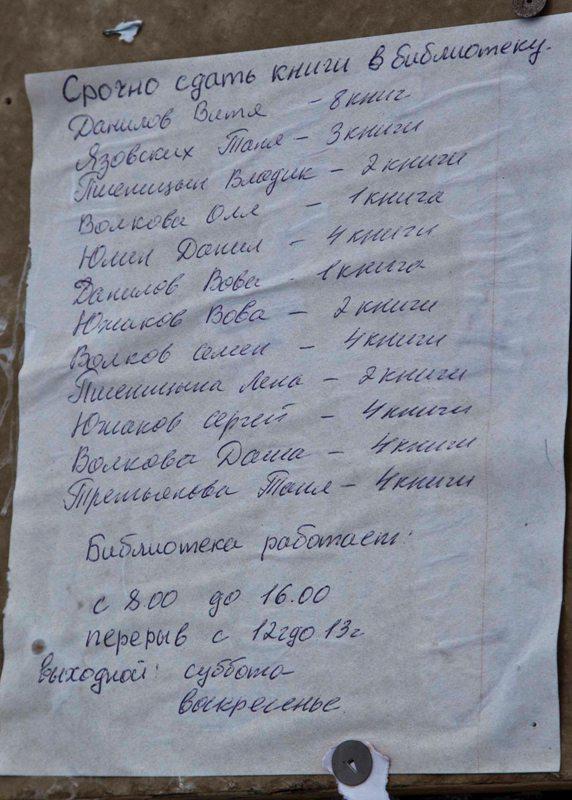 Срочно сдать книги в библиотеку.
Данилов Витя - 8 книг
Язовских Таня - 3 книги
Пшеницын Владик - 2 книги
Волкова Оля - 1 книга
Юмин Данил - 4 книги
Данилов Вова - 1 книга
Южаков Вова - 2 книги
Волков Семен - 4 книги
Пшеницына Лена - 2 книги
Южаков Сергей - 4 книги
Волкова Даша - 4 книги
Третьякова Таня - 4 книги
Библиотека работает:
с 8.00 до 16.00
перерыв с 12ч до 13ч
выходной: суббота
воскресенье